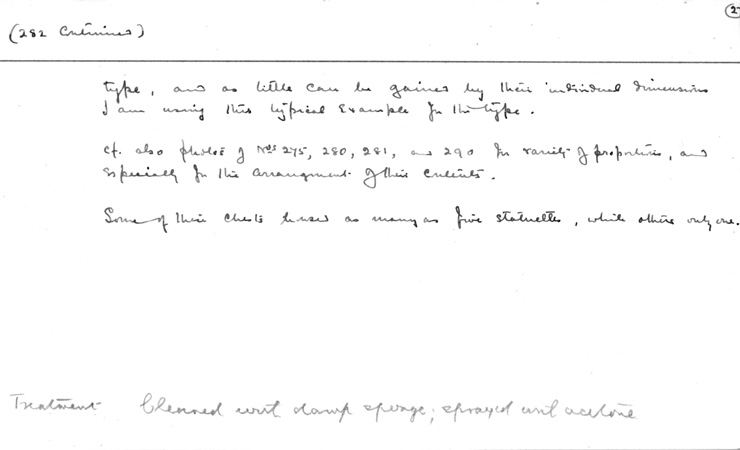 (2
(282 Continued)
type, and as little can be gained by their individual dimensions
I am using this typical example for the type.
cf. also photos of Nos 275, 280, 281, and 290 for variety of proportions, and
especially for the arrangment of their contents.
Some of these chests housed as many as five statuettes, while others only one.
Treatment Cleaned with damp sponge; sprayed with acetone